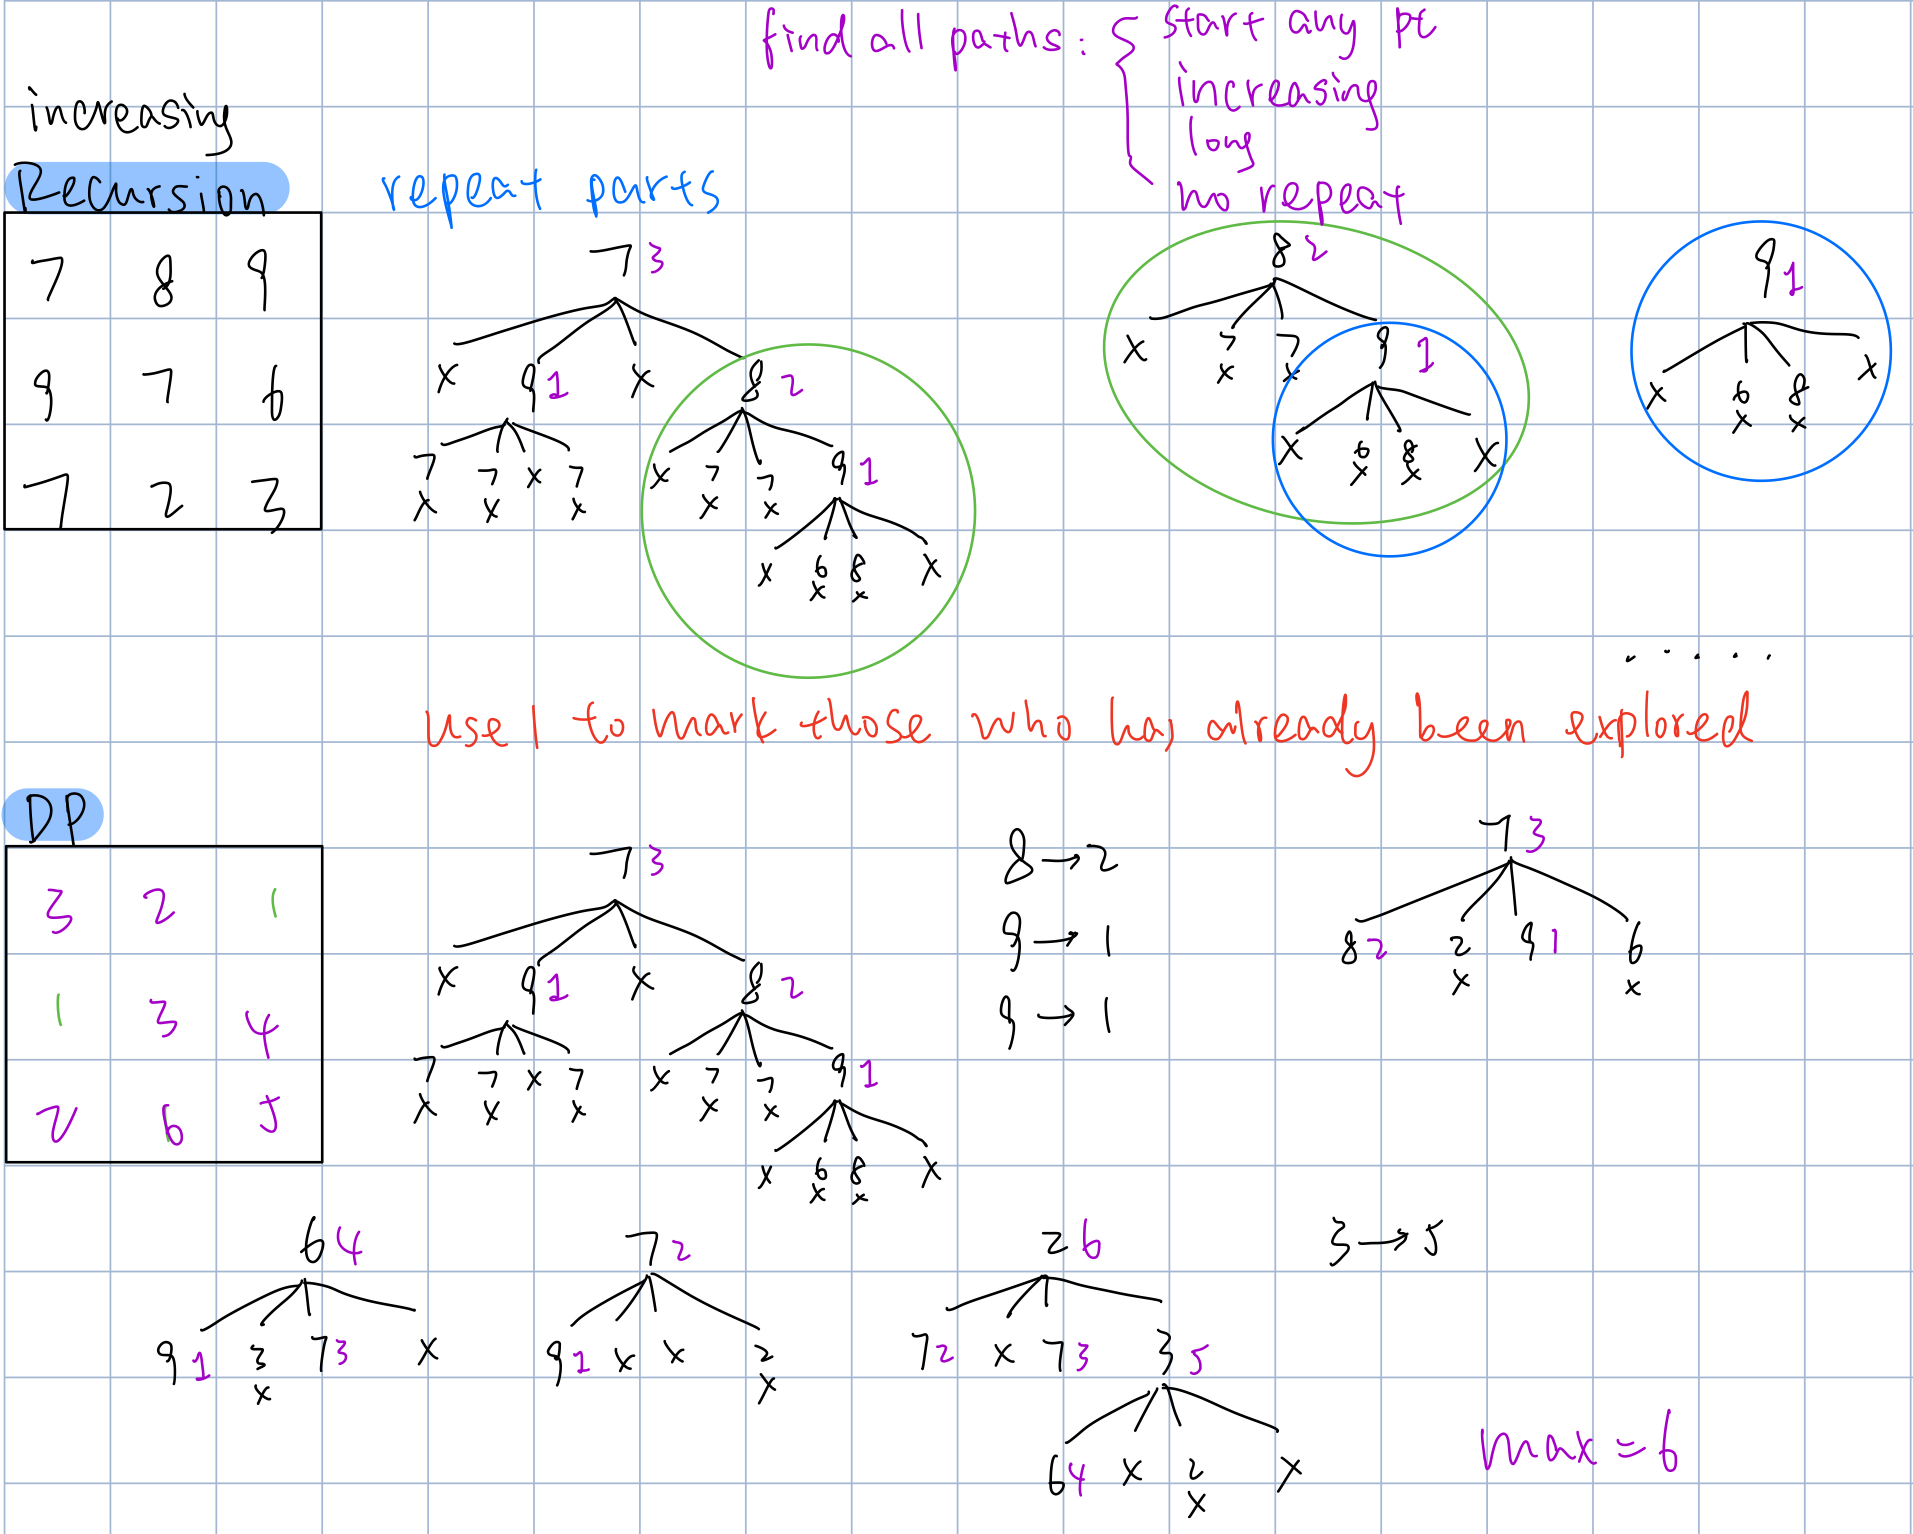 find all paths: { start any pt
increasing
long
no repeat
increasing
Recursion
repeat parts
7 8 9
9 7 6
7 2 3
7 3
x 9 1 x 8 2
7 7 x 7
x x x
x 7 7 9 1
x x
x 6 8 x
x x
8 2
x 7 7 9 1
x x
x 6 8 x
x x
9 1
x 6 8 x
x x
.....
use 1 to mark those who has already been explored
DP
3 2 1
1 3 4
2 6 5
7 3
x 9 1 x 8 2
7 7 x 7
x x x
x 7 7 9 1
x x
x 6 8 x
x x
8 → 2
9 → 1
9 → 1
7 3
8 2 2 9 1 6
x x
6 4
9 1 3 7 3 x
x
7 2
9 1 x x 2
x
2 6
7 2 x 7 3 3 5
6 4 x 2 x
x
3 → 5
max = 6